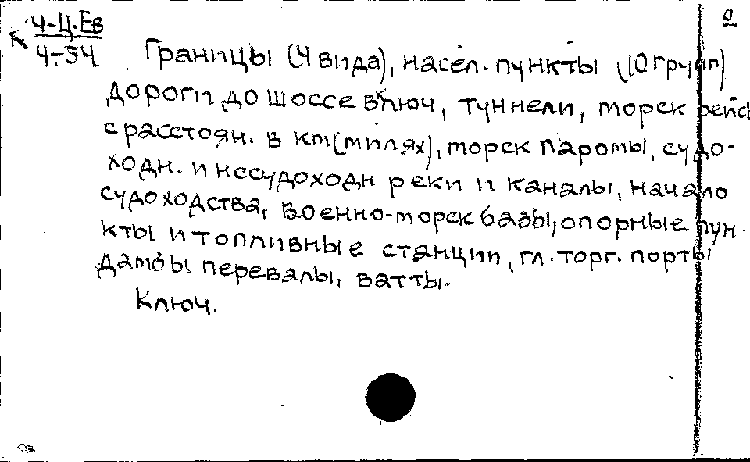 2
Ч-Ц.Ев
Ч-54
Границы (4 вида), насел. пункты (10 групп)
дороги до шоссе включ, туннели, морск рейсы
с расстоян. в км(милях), морск паромы, судо-
ходн. и несудоходн реки и каналы, начало
судоходства, военно-морск базы, опорные пун-
кты и топливные станции, гл. торг. порты
дамбы перевалы, ватты.
Ключ.